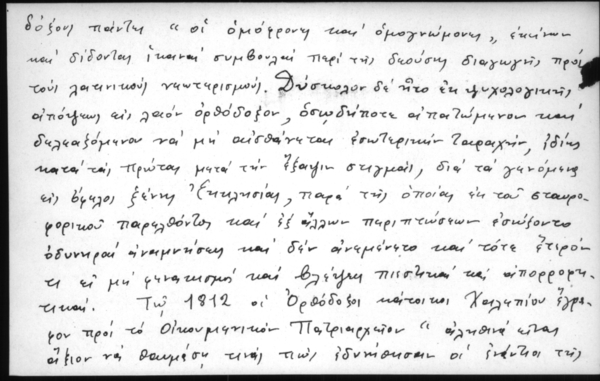 δόξους πάντες "οἱ ὁμόφρονες καὶ ὁμογνώμονες", ἐκείνων
καὶ δίδονται ἱκαναὶ συμβουλαὶ περὶ τῆς δεούσης διαγωγῆς πρὸς
τοὺς λατινικοὺς νεωτερισμούς. Δύσκολον δὲ ἦτο ἐκ ψυχολογικῆς
ἀπόψεως εἰς λαὸν ὀρθόδοξον, ὁσωδήποτε ἀπατώμενον καὶ
δελεαζόμενον νὰ μὴ αἰσθάνεται ἐσωτερικὴν ταραχήν, ἰδίως
κατὰ τὰς πρώτας μετὰ τὴν ἔξαψιν στιγμάς, διὰ τὰ γενόμενα
εἰς ὄφελος ξένης Ἐκκλησίας, παρὰ τῆς ὁποίας ἐκ τοῦ σταυρο-
φορικοῦ παρελθόντος καὶ ἐξ ἄλλων περιπτώσεων ἐσώζοντο
ὀδυνηραὶ ἀναμνήσεις καὶ δὲν ἀνεμένετο καὶ τότε ἕτερόν
τι εἰ μὴ φανατισμὸς καὶ βλέψεις πιεστικαὶ καὶ ἀπορροφη-
τικαί. Τῷ 1812 οἱ Ὀρθόδοξοι κάτοικοι Χαλεπίου ἔγρα-
φον πρὸς τὸ Οἰκουμενικὸν Πατριαρχεῖον "ἀληθινὰ εἶναι
ἄξιον νὰ θαυμάσῃ τινὰς πῶς ἐδυνήθησαν οἱ ἐνάντιοι τῆς